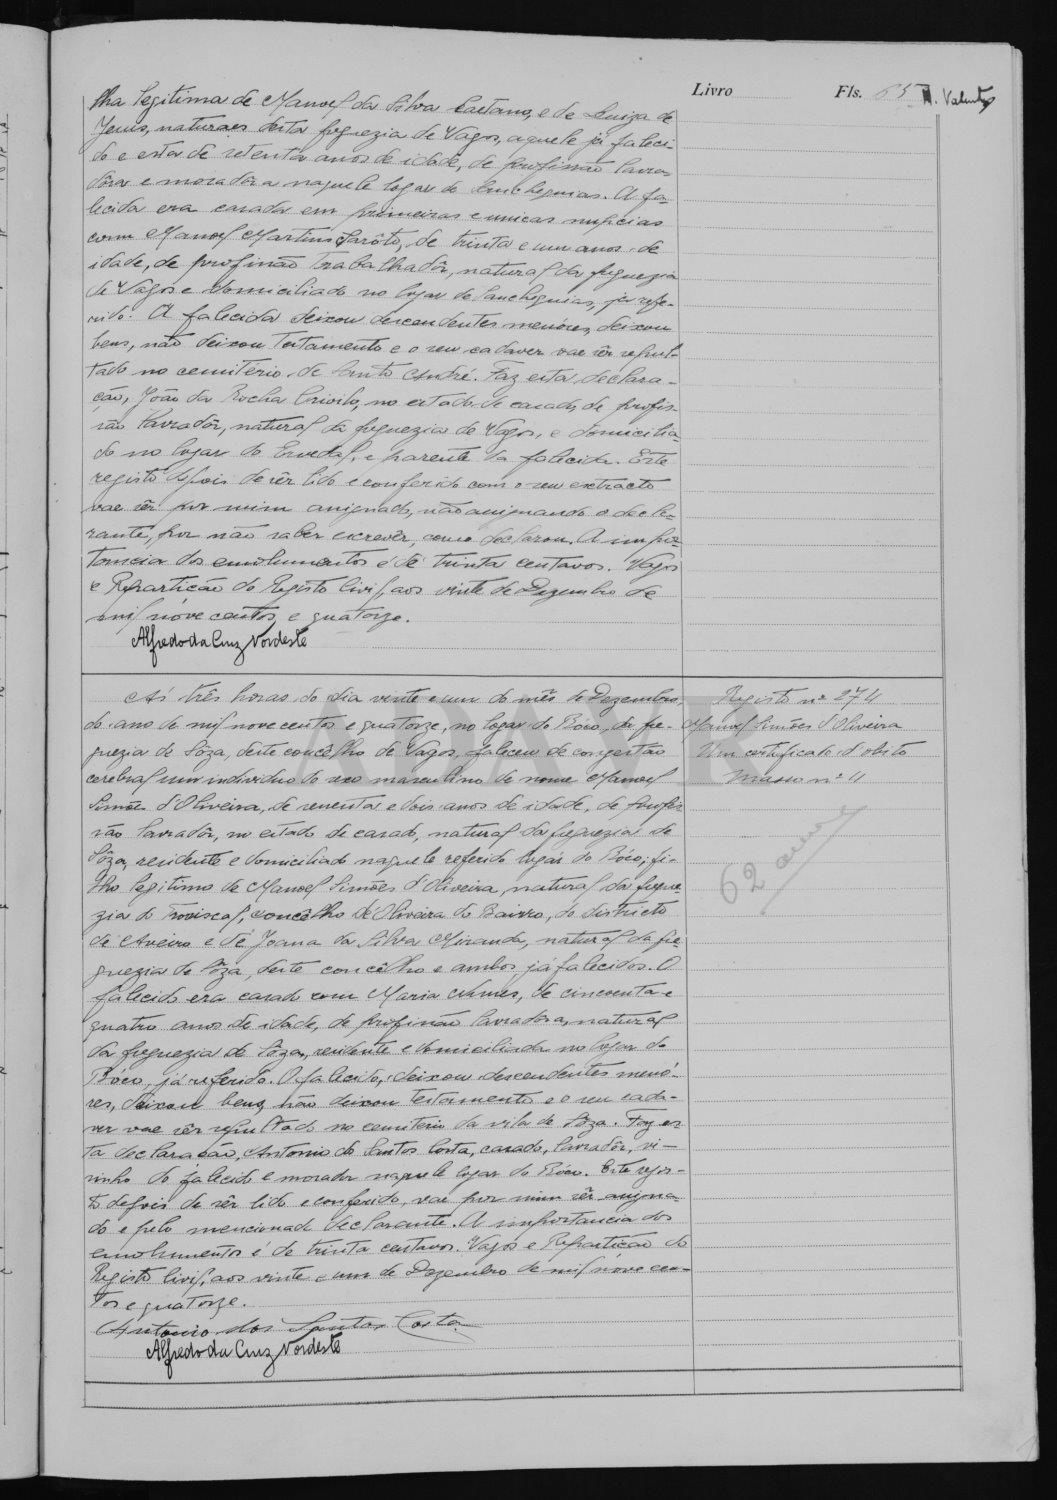 Livro Fls. 65 A. Valente
lha legitima de Manoel da Silva Caetano, e de Luiza de
Jesus, naturaes desta freguezia de Vagos, aquele já faleci-
do e esta de setenta anos de idade, de profissão lavra-
dôra e moradôra naquele logar de Lombomeão. A fa-
lecida era casada em primeiras e unicas nupcias
com Manoel Martins, de trinta e um anos de
idade, de profissão trabalhadôr, natural da freguezia
de Vagos e domiciliado no logar de, já refe-
rido. A falecida deixou descendentes menóres, deixou
bens, não deixou testamento e o seu cadaver vae sêr sepul-
tado no cemiterio de Santo André. Faz esta declara-
ção, João da Rocha, no estado de casado, de profis-
são lavradôr, natural da freguezia de Vagos, e domicilia-
do no logar de Ervedal, e parente da falecida. Este
registo depois de sêr lido e conferido com o seu extracto
vae sêr por mim assignado, não assignando o decla-
rante, por não saber escrevêr, como declarou. A impor-
tancia dos emolumentos é de trinta centavos. Vagos
e Repartição do Registo Civil, aos vinte de Dezembro de
mil nóve centos e quatorze.
Alfredo da Cruz Nordeste
Ás três horas do dia vinte e um do mês de Dezembro,
do ano de mil nove centos e quatorze, no logar do Bóco, da fre-
guezia de Sôza, deste concêlho de Vagos, faleceu de congestão
cerebral um individuo do sexo masculino de nome Manoel
Simões d'Oliveira, de sessenta e dois anos de idade, de profis-
são lavradôr, no estado de casado, natural da freguezia de
Sôza, residente e domiciliado naquele referido logár do Bóco, fi-
lho legitimo de Manoel Simões d'Oliveira, natural da fregue-
zia do Troviscal, concêlho de Oliveira do Bairro, do districto
de Aveiro e de Joana da Silva Miranda, natural da fre-
guezia de Sôza, deste concêlho e ambos já falecidos. O
falecido era casado com Maria Nunes, de cincoenta e
quatro anos de idade, de profissão lavradora, natural
da freguezia de Sôza, residente e domiciliada no logar do
Bóco, já referido. O falecido, deixou descendentes menó-
res, deixou bens, não deixou testamento e o seu cada-
ver vae sêr sepultado no cemiterio da vila de Sôza. Faz es-
ta declaração, Antonio dos Santos Costa, casado, lavradôr, vi-
sinho do falecido e morador naquele logar do Bóco. Este regis-
to depois de sêr lido e conferido, vae por mim sêr assigna-
do e pelo mencionado declarante. A importancia dos
emolumentos é de trinta centavos. Vagos e Repartição do
Registo Civil, aos vinte e um de Dezembro de mil nóve cen-
tos e quatorze.
Antonio dos Santos Costa
Alfredo da Cruz Nordeste
Registo nº 274
Manoel Simões d'Oliveira
Um certificado d'obito
Masso nº 11
62 anos